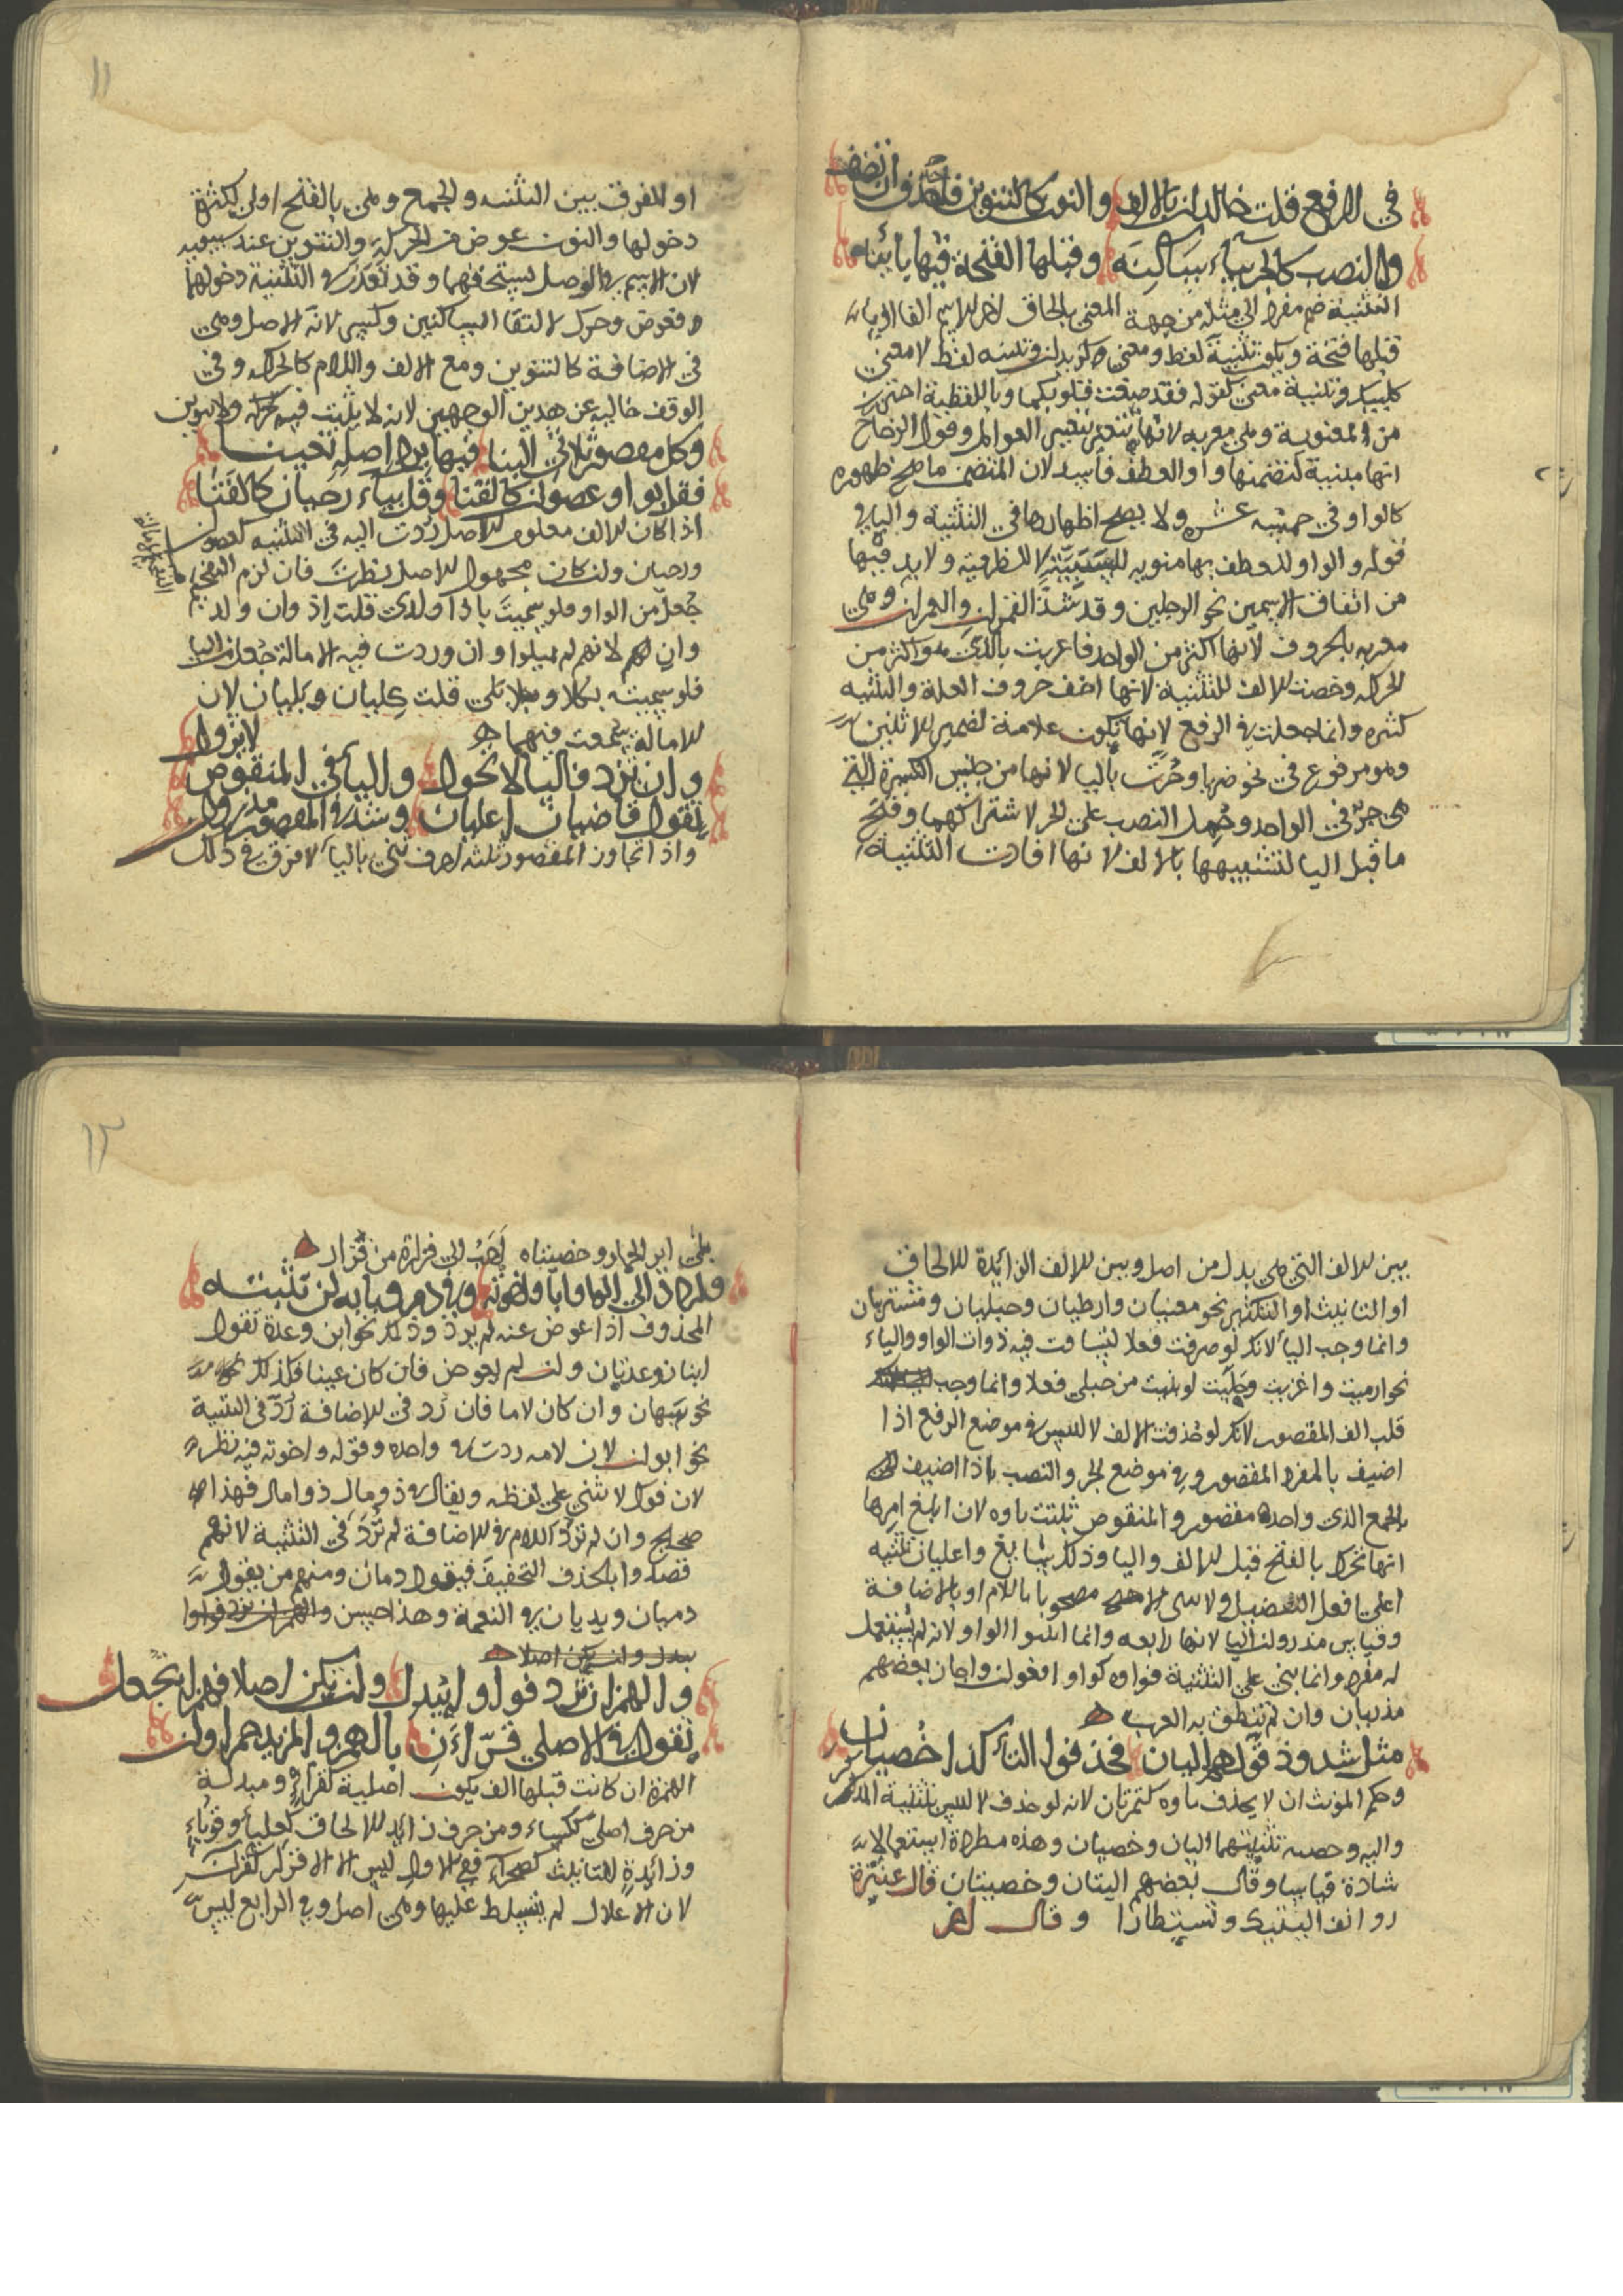 في الرفع قلت خالدان بالالف والنون كالتنوين فاحذف ان تضف
والنصب كالجر بياء ساكنه وقبلها الفتحة فيها بائنه
التثنية ضم مفرد الى مثله من جهة المعنى بالحاق اخر الاسم الفا او ياء
قبلها فتحة ويكون تثنية لفظ ومعنى كزيدان وتثنيه لفظ لا معنى
كلبيك وتثنية معنى كقوله فقد صغت قلوبكما وباللفظية احترز
من المعنوية وهي معربه لانها تتغير بتغيير العوامل وقول الزجاج
انها مبنية لتضمنها واو العطف فاسد لان المتضمن ما صح ظهوره
كالواو في خمسه عشر ولا يصح اظهارها في التثنية والبا في
قوله والواو للعطف بها منويه للسببية لا للظرفية ولا بد فيها
من اتفاق الاسمين نحو الرجلين وقد شذ القمران والعمران وهي
معربه بالحروف لانها اكثر من الواحد فاعربت بالذي هو اكثر من
الحركه وخصت الالف للتثنية لانها اخف حروف العلة والتثنيه
كثيره وانما جعلت في الرفع لانها تكون علامة لضمير الاثنين
وهو مرفوع في نحو ضربا وجرت باليا لانها من جنس الكسرة التي
هي جر في الواحد وحمل النصب على الجر لاشتراكهما وفتح
ما قبل اليا لتشبيهها بالالف لانها افادت التثنية
١١
او للفرق بين التثنيه والجمع وهي بالفتح اولى لكثرة
دخولها والنون عوض من الحركة والتنوين عند سيبويه
لان الاسم في الوصل يستحقهما وقد تعذر في التثنية دخولهما
فعوض وحرك لالتقا الساكنين وكسر لانه الاصل وهي
في الاضافة كالتنوين ومع الالف واللام كالحركه وفي
الوقف خاليه عن هذين الوجهين لانه لا يثبت فيه حركه ولا تنوين
وكل مقصور ثلاثي البنا فيها يرد اصله تعينا
فقل بواو عصوان كالقنا وقل بياء رحيان كالفتا
اذا كان الالف معلوم الاصل ردت اليه في التثنيه كعصوان
ورحيان وان كان مجهول الاصل نظرت فان لزم التفخيم
جعل من الواو فلو سميت باذا ولدى قلت اذوان ولد
وان لانهم لم يميلوا وان وردت فيه الامالة جعل من اليا
فلو سميت بكلا وبلى قلت كليان وبليان لان
الامالة سمعت فيهما
وان تزد فاليا لا تحول واليا في المنقوص لا تزول
تقول قاضيان اعليان وشذ في المقصور مذروان
واذا تجاوز المقصور ثلثه احرف ثني باليا لا فرق في ذلك
بين الالف التي هي بدل من اصل وبين الالف الزائدة للالحاق
او التانيث او التكثير نحو معنيان وارطيان وحبليان ومشتريان
وانما وجب اليا لانك لو صرفت فعلا لتساوت فيه ذوات الواو والياء
نحو ارميت واغزيت وحبليت لو بنيت من حبلى فعلا وانما وجب
قلب الف المقصور لانك لو حذفت الالف لالتبس في موضع الرفع اذا
اضيف بالمفرد المقصور وفي موضع الجر والنصب اذا اضيف
بالجمع الذي واحده مقصور والمنقوص ثلثت ياوه لان ابلغ امرها
انها تحرك بالفتح قبل الالف واليا وذلك سايغ واعليان تثنيه
اعلى افعل التفضيل ولا يثنى الا مصحوبا باللام او بالاضافة
وقياس مذروان اليا لانها رابعه وانما اثبتوا الواو لانه لم يستعمل
له مفرد وانما بني على التثنية واجاز بعضهم
مذريان وان لم تنطق به العرب
مثل شذوذ قولهم اليان فحذفوا التا كذا خصيان
وحكم المونث ان لا يحذف تاوه كتمرتان لانه لو حذف لالتبس بتثنية المذكر
واليه وخصيه تثنيتهما اليان وخصيان وهذه مطردة استعمالا
شاذة قياسا وقال بعضهم اليتان وخصيتان قال عنترة
روانف اليتيك وتستطارا وقال اخر
١٢
بلى اير الحمار وخصيتاه احب الى فزارة من فزار
واردد الى ابا واخوته وفي دم وبابه ان تثبته
المحذوف اذا عوض عنه لم يرد وذلك نحو ابن وعدة تقول
ابنان وعدتان وان لم يعوض فان كان عينا فكذلك
نحو سهان وان كان لاما فان رد في الاضافة رد في التثنية
نحو ابوان لان لامه ردت في واحده وقوله واخوته فيه نظر
لان فوك لا يثنى على لفظه ويقال في ذو مال ذوا مال فهذا
صحيح وان لم ترد اللام في الاضافة لم ترد في التثنية لانهم
قصدوا بالحذف التخفيف فيقول دمان ومنهم من يقول
دميان ويديان في النعمة وهذا حسن
والهمز ان تزد فواوا يبدل وان يكن اصلا فهمزا يجعل
تقول في الاصلي قراءن بالهمز والمزيد حمراوان
الهمزة ان كانت قبلها الف يكون اصلية كقراء ومبدلة
من حرف اصلي ككساء ومن حرف زايد للالحاق كعلباء وقوباء
وزائدة للتانيث كصحراء ففي الاول ليس الا الاقرار كقراءن
لان الاعلال لم يتسلط عليها وهي اصل وفي الرابع ليس